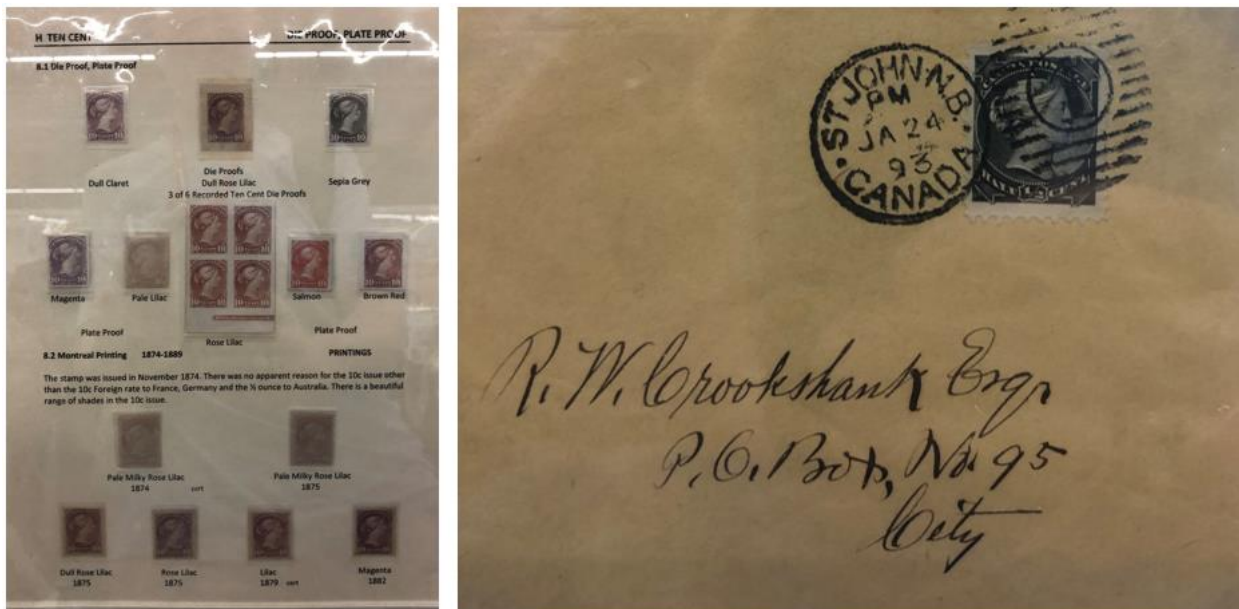 H TEN CENT DIE PROOF, PLATE PROOF
8.1 Die Proof, Plate Proof
Die Proofs
Dull Claret Dull Rose Lilac Sepia Grey
3 of 6 Recorded Ten Cent Die Proofs
Magenta Pale Lilac Salmon Brown Red
Plate Proof Plate Proof
Rose Lilac
8.2 Montreal Printing 1874-1889 PRINTINGS
The stamp was issued in November 1874. There was no apparent reason for the 10c issue other
than the 10c Foreign rate to France, Germany and the ½ ounce to Australia. There is a beautiful
range of shades in the 10c issue.
Pale Milky Rose Lilac Pale Milky Rose Lilac
1874 cert 1875
Dull Rose Lilac Rose Lilac Lilac Magenta
1875 1875 1879 cert 1882
ST JOHN·N.B.
PM
JA 24
93
CANADA
1
HALF CENT
R. W. Crookshank Esqr
P.O. Box, No. 95
City